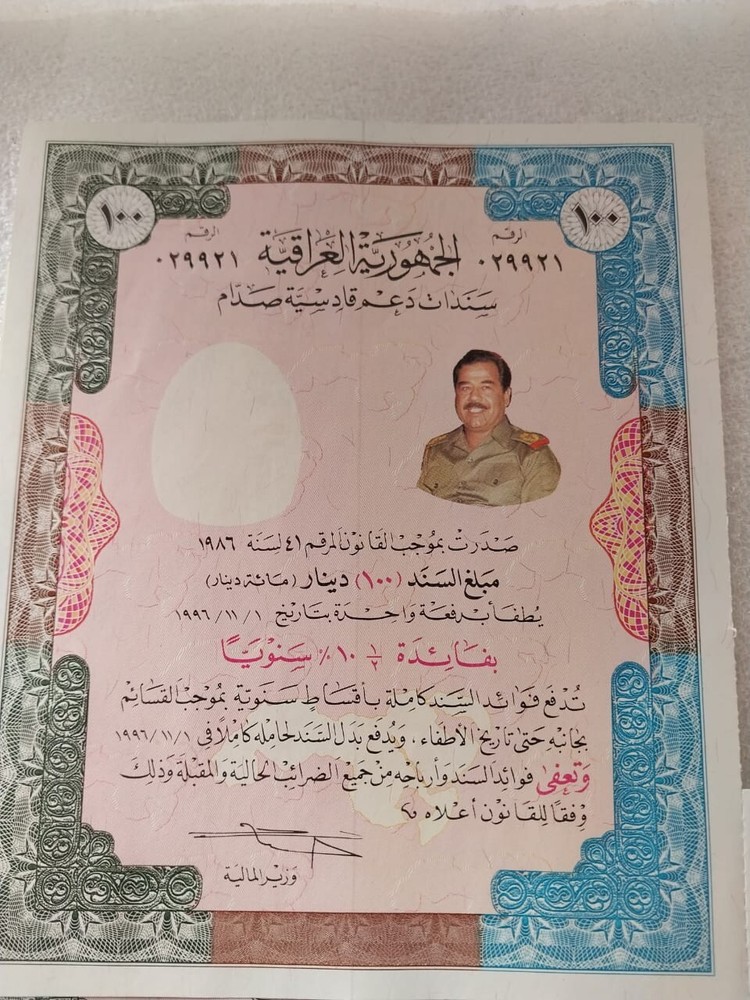 ١٠٠
١٠٠
الرقم
٠٢٩٩٢١
الجمهورية العراقية
الرقم
٠٢٩٩٢١
سندات دعم قادسية صدام
صدرت بموجب القانون المرقم ٤١ لسنة ١٩٨٦
مبلغ السند (١٠٠) دينار (مائة دينار)
يُطفأ بدفعة واحدة بتاريخ ١٩٩٦/١١/١
بفائدة ١/٢ ١٠٪ سنويًا
تُدفع فوائد السند كاملة بأقساط سنوية بموجب القسائم
بجانبه حتى تاريخ الأطفاء، ويُدفع بدل السند لحامله كاملًا في ١٩٩٦/١١/١
وتعفى فوائد السند وأرباحه من جميع الضرائب الحالية والمقبلة وذلك
وفقًا للقانون أعلاه
وزير المالية